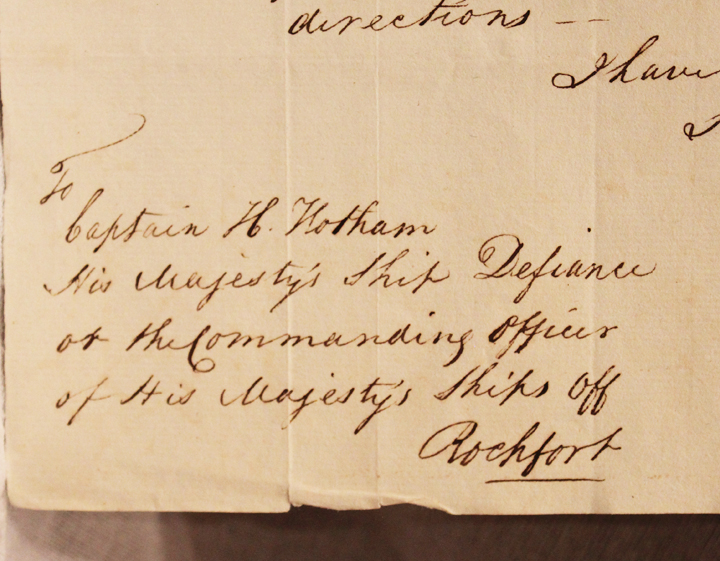 directions --
I have
To
Captain H. Hotham
His Majesty's Ship Defiance
or the Commanding Officer
of His Majesty's Ships off
Rochfort